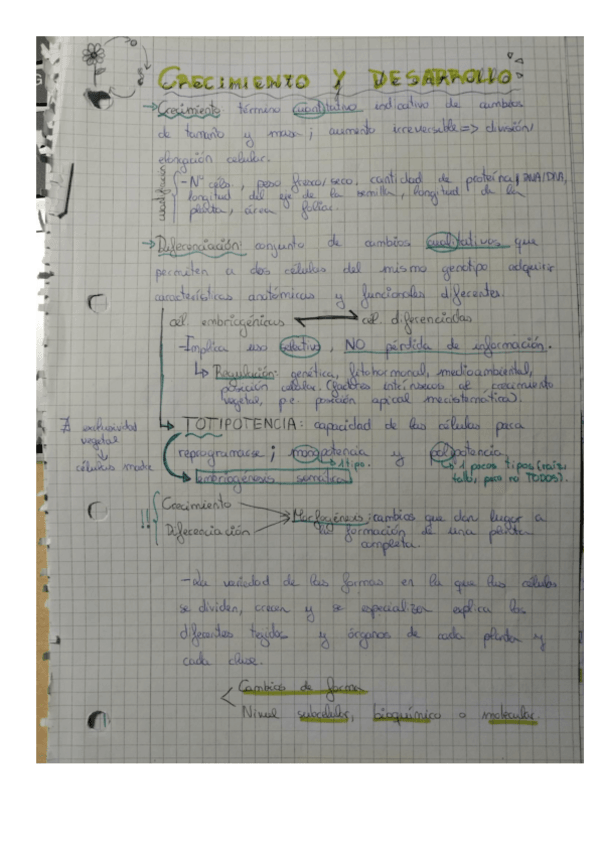 CRECIMIENTO Y DESARROLLO
→ Crecimiento término cuantitativo indicativo de cambios
de tamaño y masa ; aumento irreversible => división/
elongación celular.
- Nº céls., peso fresco/seco, cantidad de proteína/RNA/DNA,
longitud del eje de la semilla, longitud de la
planta, área foliar.
→ Diferenciación: conjunto de cambios cualitativos que
permiten a dos células del mismo genotipo adquirir
características anatómicas y funcionales diferentes.
cél. embriogénicas cél. diferenciadas
- Implica uso selectivo, NO pérdida de información.
↳ Regulación: genética, fitohormonal, medioambiental,
posición celular. (factores intrínsecos al crecimiento
vegetal, p.e. posición apical meristemática).
∄ exclusividad
vegetal
↓
células madre
TOTIPOTENCIA: capacidad de las células para
reprogramarse ; monopotencia y polipotencia
↳ 1 tipo.
pocos tipos (raíz,
tallo, pero no TODOS).
Embriogénesis somática
!! Crecimiento
Diferenciación
Morfogénesis: cambios que dan lugar a
la formación de una planta
completa.
- La variedad de las formas en la que las células
se dividen, crecen y se especializan explica los
diferentes tejidos y órganos de cada planta y
cada clase.
Cambios de forma
Nivel subcelular, bioquímico o molecular.